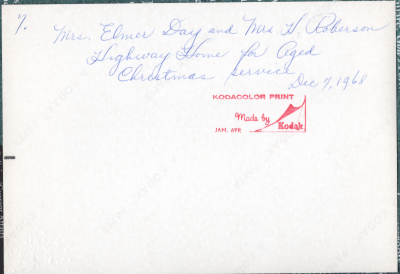 7.
Mrs. Elmer Day and Mrs. H. Roberson
Highway Home for Aged
Christmas service
Dec 7, 1968
KODACOLOR PRINT
Made by
Kodak
JAN. APR.